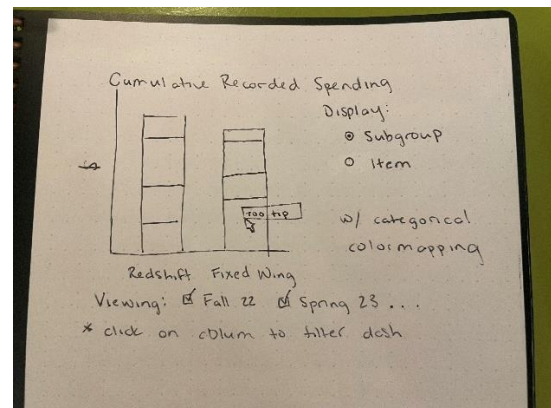 Cumulative Recorded Spending
Display:
Subgroup
Item
$
tool tip
w/ categorical
colormapping
Redshift Fixed Wing
Viewing: ☑ Fall 22 ☑ Spring 23 ...
* click on colum to filter dash